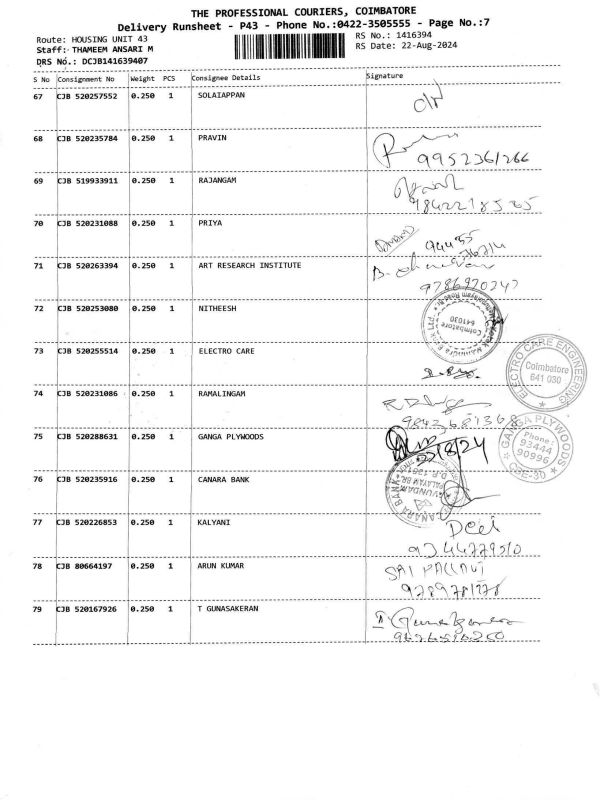 THE PROFESSIONAL COURIERS, COIMBATORE
Delivery Runsheet - P43 - Phone No.:0422-3505555 - Page No.:7
Route: HOUSING UNIT 43
RS No.: 1416394
Staff: THAMEEM ANSARI M
RS Date: 22-Aug-2024
DRS No.: DCJB141639407
S No Consignment No Weight PCS Consignee Details Signature
67 CJB 520257552 0.250 1 SOLAIAPPAN
68 CJB 520235784 0.250 1 PRAVIN
9952361266
69 CJB 519933911 0.250 1 RAJANGAM
70 CJB 520231088 0.250 1 PRIYA
71 CJB 520263394 0.250 1 ART RESEARCH INSTITUTE
72 CJB 520253080 0.250 1 NITHEESH
Coimbatore
641030
73 CJB 520255514 0.250 1 ELECTRO CARE
ELECTRO CARE ENGINEERING
Coimbatore
641 030
74 CJB 520231086 0.250 1 RAMALINGAM
75 CJB 520288631 0.250 1 GANGA PLYWOODS
22/8/24
GANGA PLYWOODS
Phone:
93444
90996
CBE-30
76 CJB 520235916 0.250 1 CANARA BANK
CANARA BANK
77 CJB 520226853 0.250 1 KALYANI
9344779510
78 CJB 80664197 0.250 1 ARUN KUMAR
SAI PALLAVI
79 CJB 520167926 0.250 1 T GUNASAKERAN